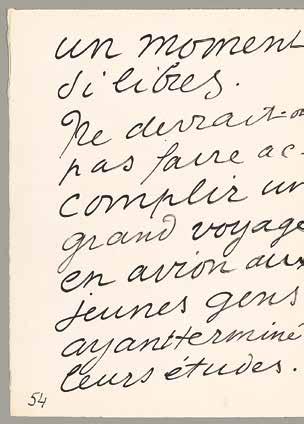 un moment
si libres.
Ne devrait-on
pas faire ac-
complir un
grand voyage
en avion aux
jeunes gens
ayant terminé
leurs études.
54